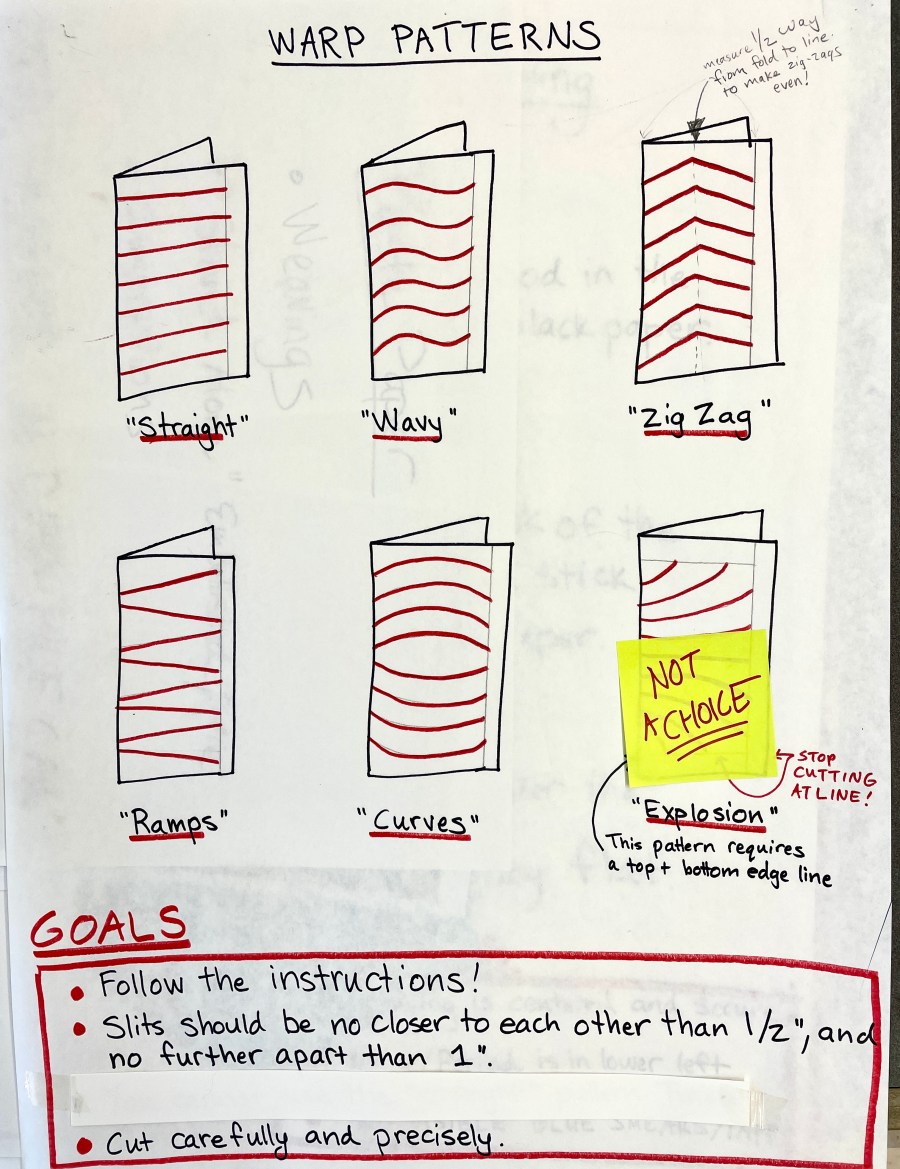 WARP PATTERNS
measure 1/2 way
from fold to line.
to make zig-zags
even!
"Straight"
"Wavy"
"Zig Zag"
NOT
A CHOICE
STOP
CUTTING
AT LINE!
"Ramps"
"Curves"
"Explosion"
This pattern requires
a top + bottom edge line
GOALS
• Follow the instructions!
• Slits should be no closer to each other than 1/2", and
no further apart than 1".
• Cut carefully and precisely.